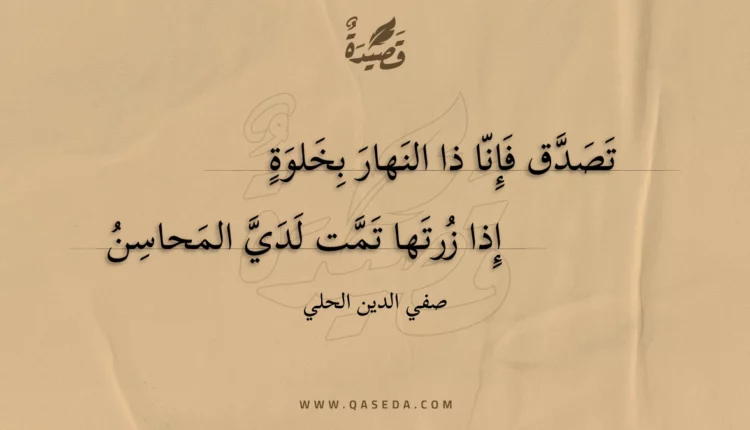 قَصِيدَةٌ
تَصَدَّق فَإِنّا ذا النَهارَ بِخَلوَةٍ
إِذا زُرتَها تَمَّت لَدَيَّ المَحاسِنُ
صفي الدين الحلي
WWW.QASEDA.COM